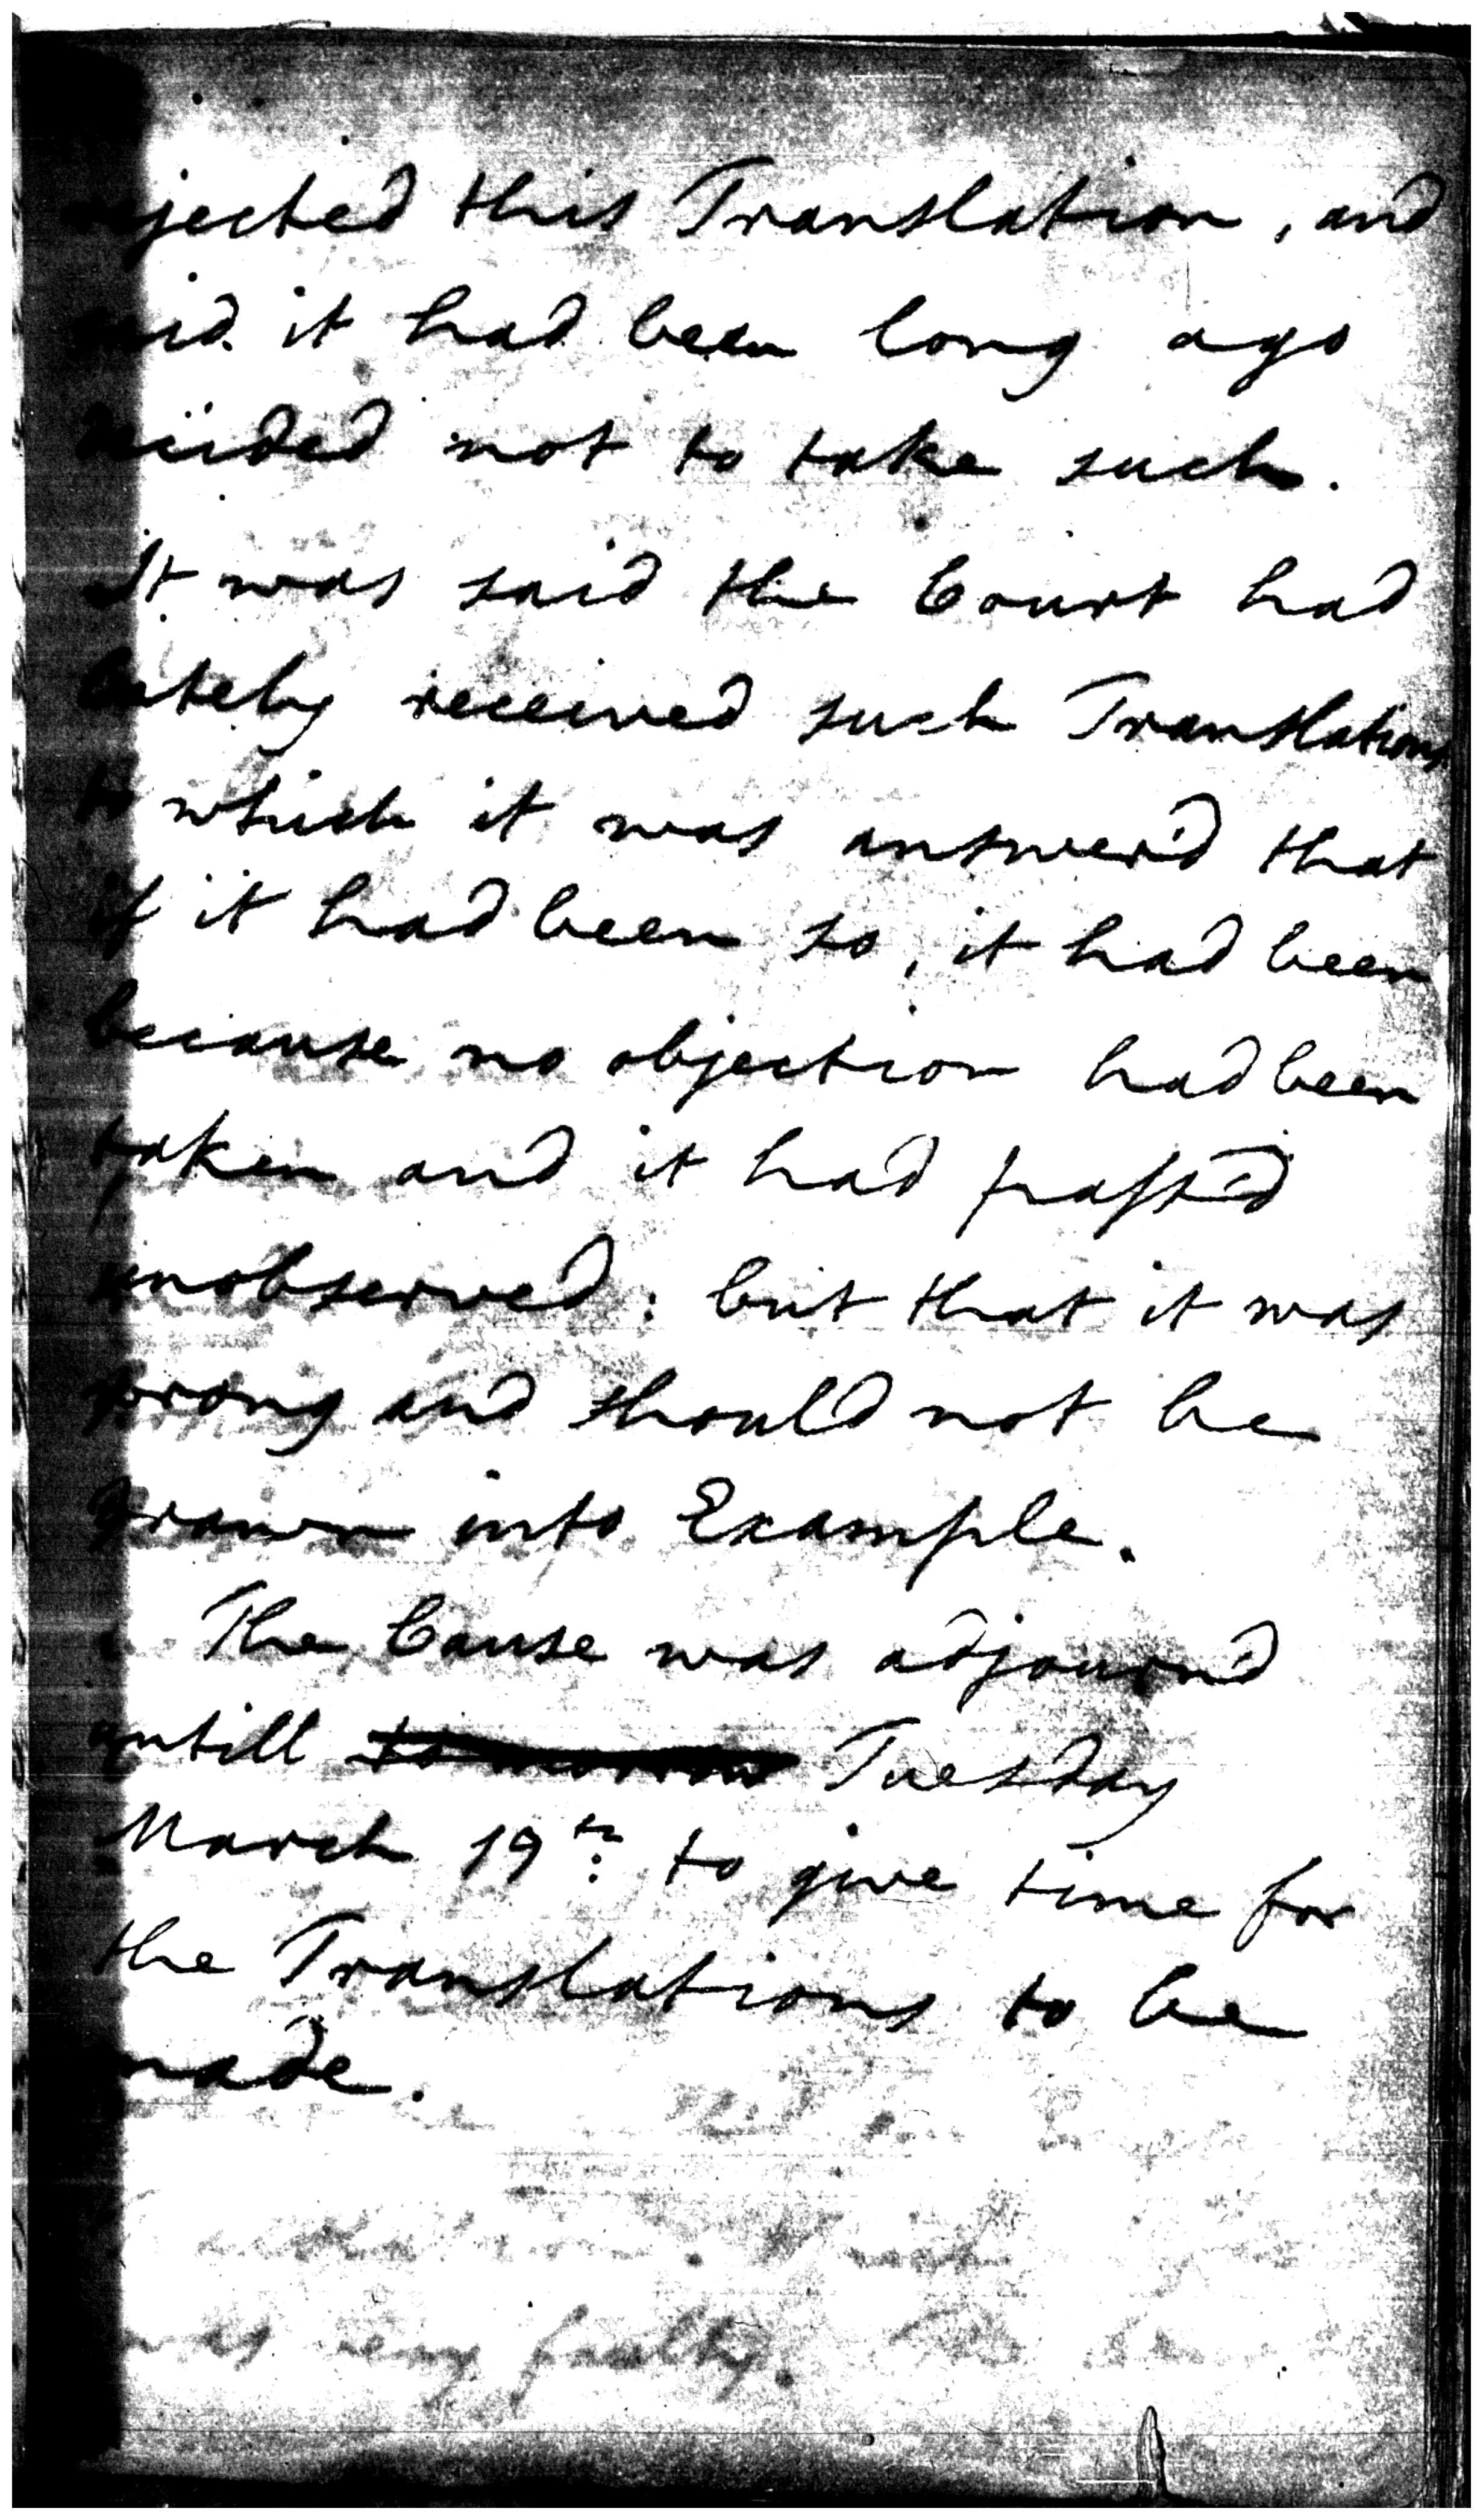 rejected this Translation, and
said it had been long ago
decided not to take such.
It was said the Court had
lately received such Translations
to which it was answer'd that
if it had been so, it had been
because no objection had been
taken and it had pass'd
unobserved: but that it was
wrong and should not be
drawn into Example.
The Cause was adjourn'd
untill tomorrow Tuesday
March 19th: to give time for
the Translations to be
made.
was very faulty.